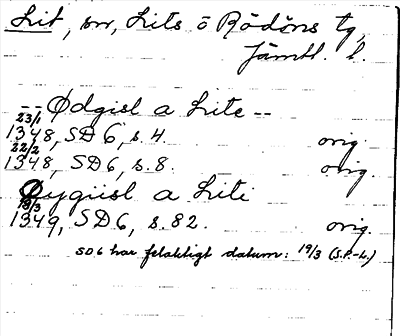 Lit, sn, Lits o Rödöns tg,
Jämtl. l.
-- Ødgisl a Lite --
23/1
1348, SD 6, s. 4. orig.
22/2
1348, SD 6, s. 8. orig.
Øygiisl a Liti
18/3
1349, SD 6, s. 82. orig.
SD 6 har felaktigt datum: 19/3 (S.P.-L.)